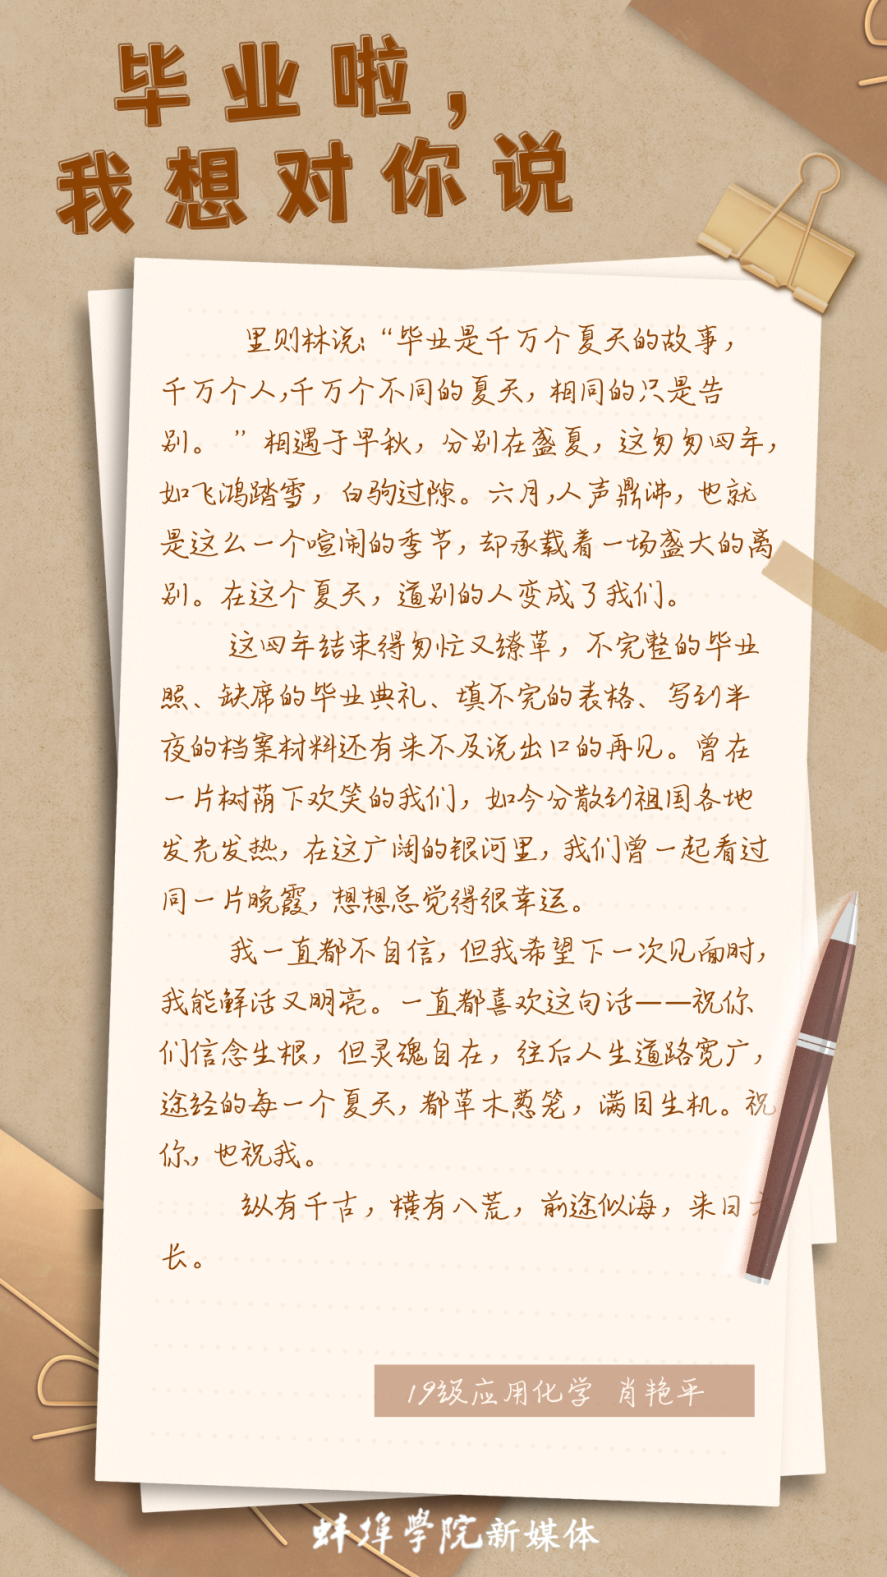 毕业啦，
我想对你说
里则林说：“毕业是千万个夏天的故事，
千万个人，千万个不同的夏天，相同的只是告
别。”相遇于早秋，分别在盛夏，这匆匆四年，
如飞鸿踏雪，白驹过隙。六月，人声鼎沸，也就
是这么一个喧闹的季节，却承载着一场盛大的离
别。在这个夏天，道别的人变成了我们。
这四年结束得匆忙又缭草，不完整的毕业
照、缺席的毕业典礼、填不完的表格、写到半
夜的档案材料还有来不及说出口的再见。曾在
一片树荫下欢笑的我们，如今分散到祖国各地
发光发热，在这广阔的银河里，我们曾一起看过
同一片晚霞，想想总觉得很幸运。
我一直都不自信，但我希望下一次见面时，
我能鲜活又明亮。一直都喜欢这句话——祝你
们信念生根，但灵魂自在，往后人生道路宽广，
途经的每一个夏天，都草木葱笼，满目生机。祝
你，也祝我。
纵有千古，横有八荒，前途似海，来日方
长。
19级应用化学 肖艳平
蚌埠学院新媒体